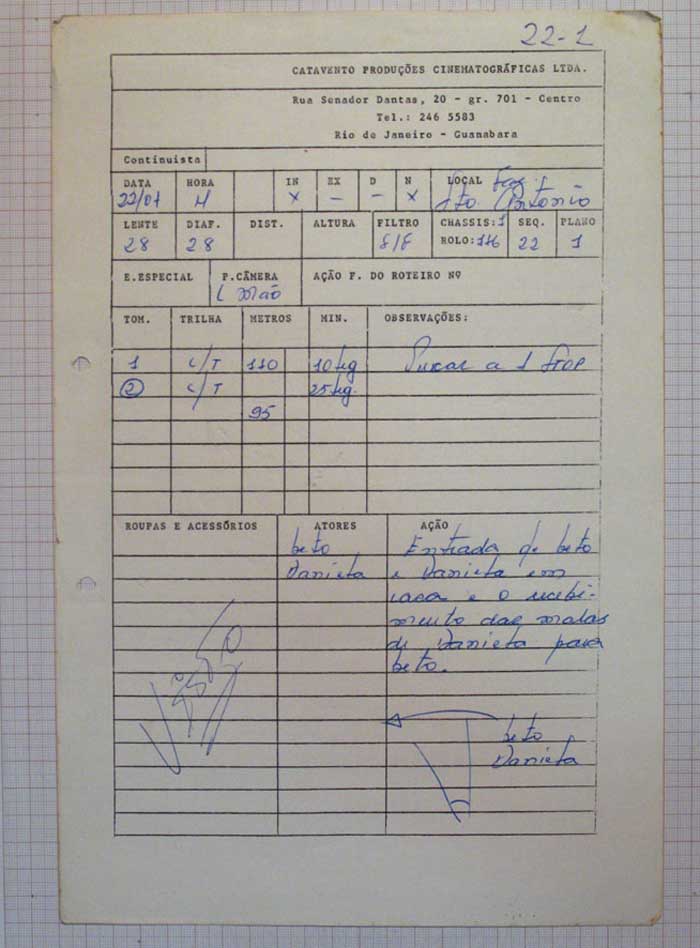 22-1
CATAVENTO PRODUÇÕES CINEMATOGRÁFICAS LTDA.
Rua Senador Dantas, 20 - gr. 701 - Centro
Tel.: 246 5583
Rio de Janeiro - Guanabara
Continuista
DATA HORA IN EX D N LOCAL Faz.
22/01 M X — — X Sto. Antonio
LENTE DIAF. DIST. ALTURA FILTRO CHASSIS: 1 SEQ. PLANO
28 28 S/F ROLO: 116 22 1
E.ESPECIAL P.CÂMERA AÇÃO F. DO ROTEIRO Nº
mão
TOM. TRILHA METROS MIN. OBSERVAÇÕES:
1 C/T 110 10 seg Puxar a 1 Stop
2 C/T 25 seg.
95
ROUPAS E ACESSÓRIOS ATORES AÇÃO
beto Entrada de beto
Daniela e Daniela em
casa e o recebi-
mento das malas
de Daniela para
beto.
beto
Daniela